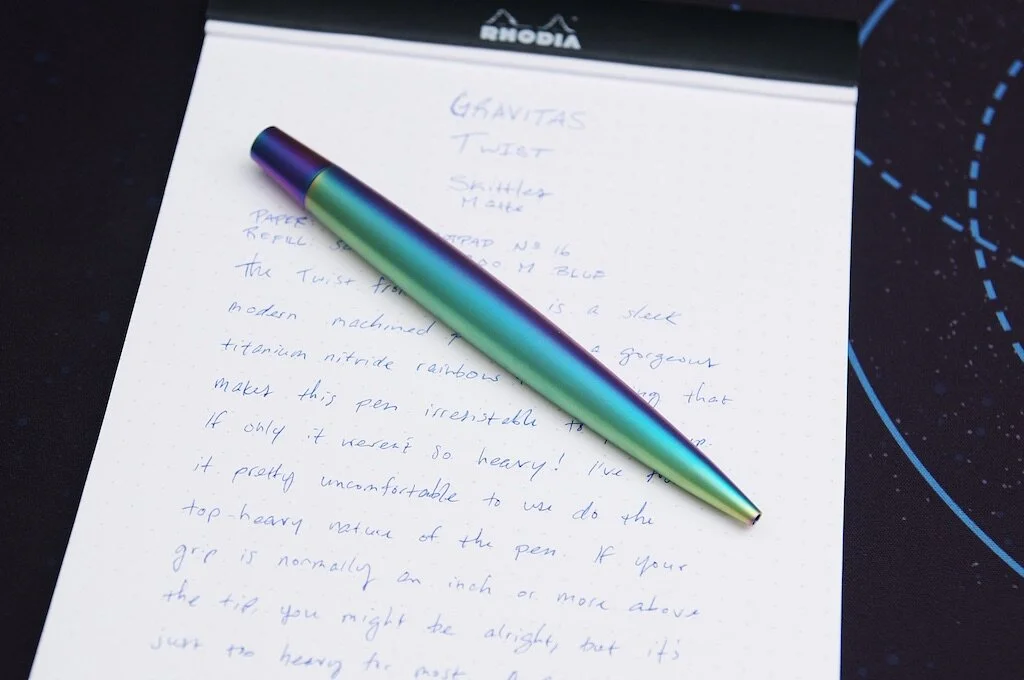 RHODIA
GRAVITAS
TWIST
Skittles
Matte
PAPER: PAD Nº 16
REFILL M BLUE
the Twist from is a sleek
modern machined a gorgeous
titanium nitride rainbow that
makes this pen irresistable to
If only it weren't so heavy! I've
it pretty uncomfortable to use do the
top-heavy nature of the pen. If your
grip is normally an inch or more above
the tip, you might be alright, but it's
just too heavy for most.